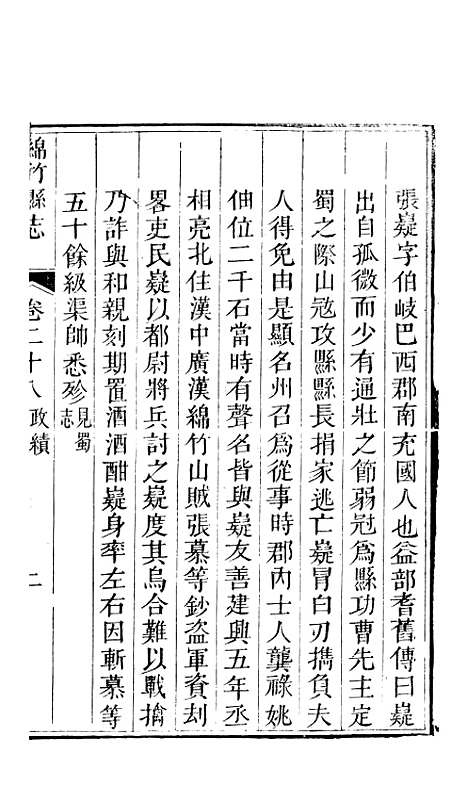 張嶷字伯岐巴西郡南充國人也益部耆舊傳曰嶷
出自孤微而少有通壯之節弱冠爲縣功曹先主定
蜀之際山寇攻縣縣長捐家逃亡嶷冒白刃攜負夫
人得免由是顯名州召爲從事時郡內士人龔祿姚
伷位二千石當時有聲名皆與嶷友善建興五年丞
相亮北住漢中廣漢綿竹山賊張慕等鈔盜軍資刦
畧吏民嶷以都尉將兵討之嶷度其鳥合難以戰擒
乃詐與和親刻期置酒酒酣嶷身率左右因斬慕等
五十餘級渠帥悉殄見蜀志
綿竹縣志 卷二十八 政績 二